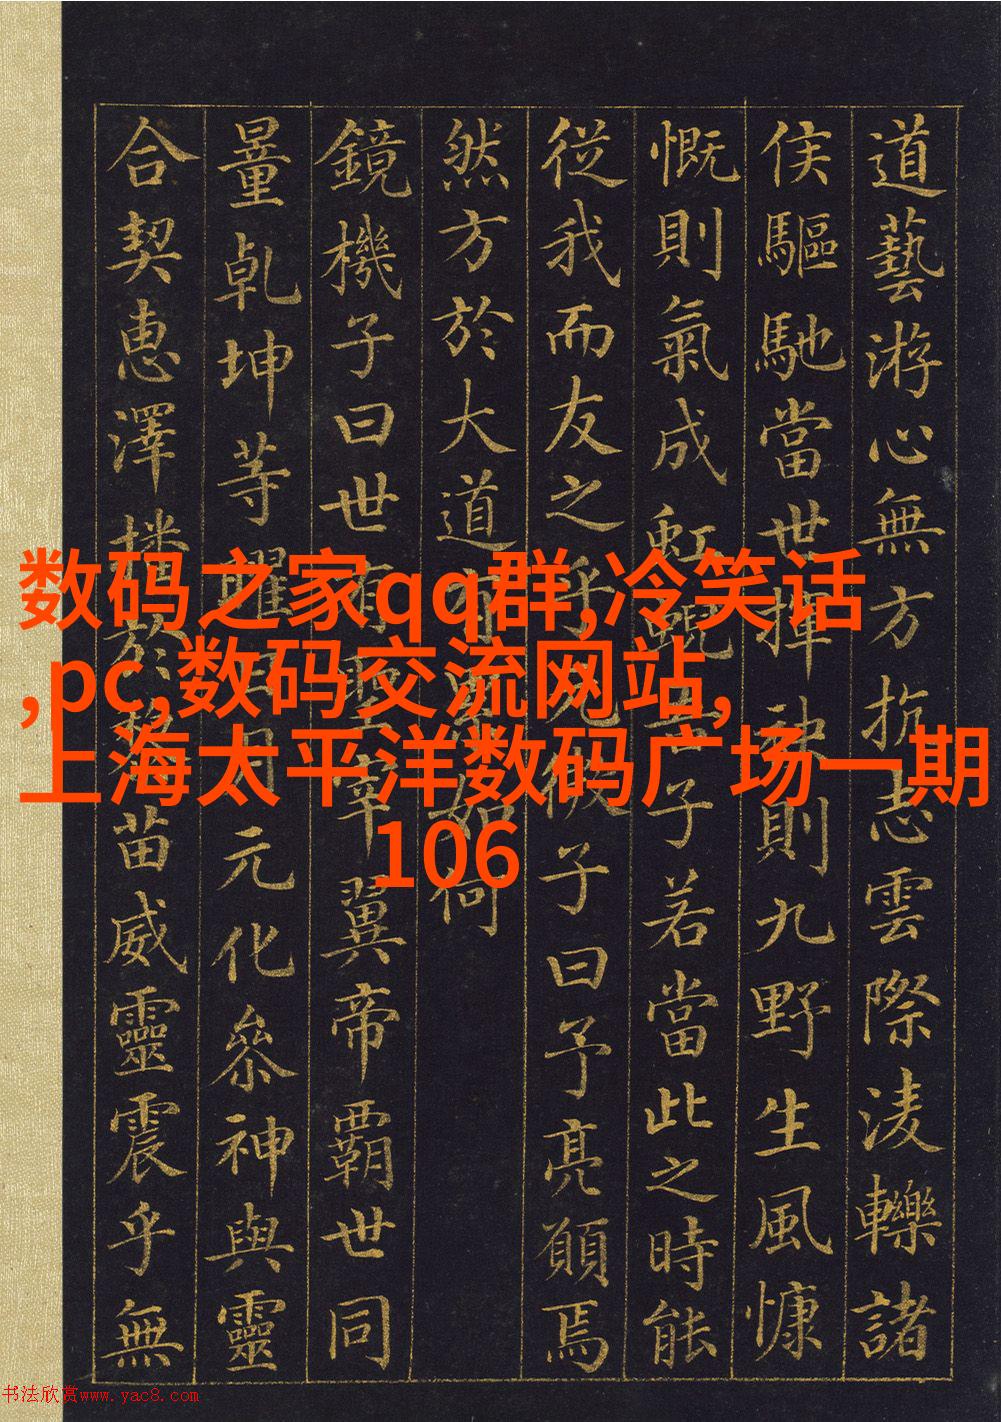 道藝游心無方抗志雲際淩轢諸
侯驅馳當世揮袂則九野生風慷
慨則氣成虹蜺子若當此之時能
從我而友之乎子曰予亮願焉
然方於大道如何
鏡機子曰世有聖宰翼帝霸世同
量乾坤等曜日月元化參神與靈
合契惠澤播於黎苗威靈震乎無
数码之家qq群,冷笑话
,pc,数码交流网站,
上海太平洋数码广场一期
106
书法欣赏www.yac8.com